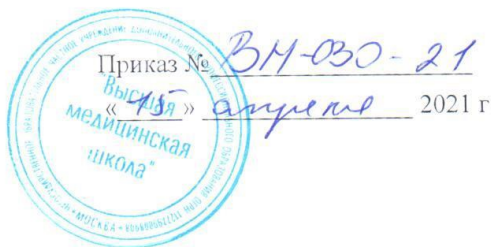 Приказ № ВМ-030-21
« 15 » апреля 2021 г
"Высшая
медицинская
школа"
МОСКВА